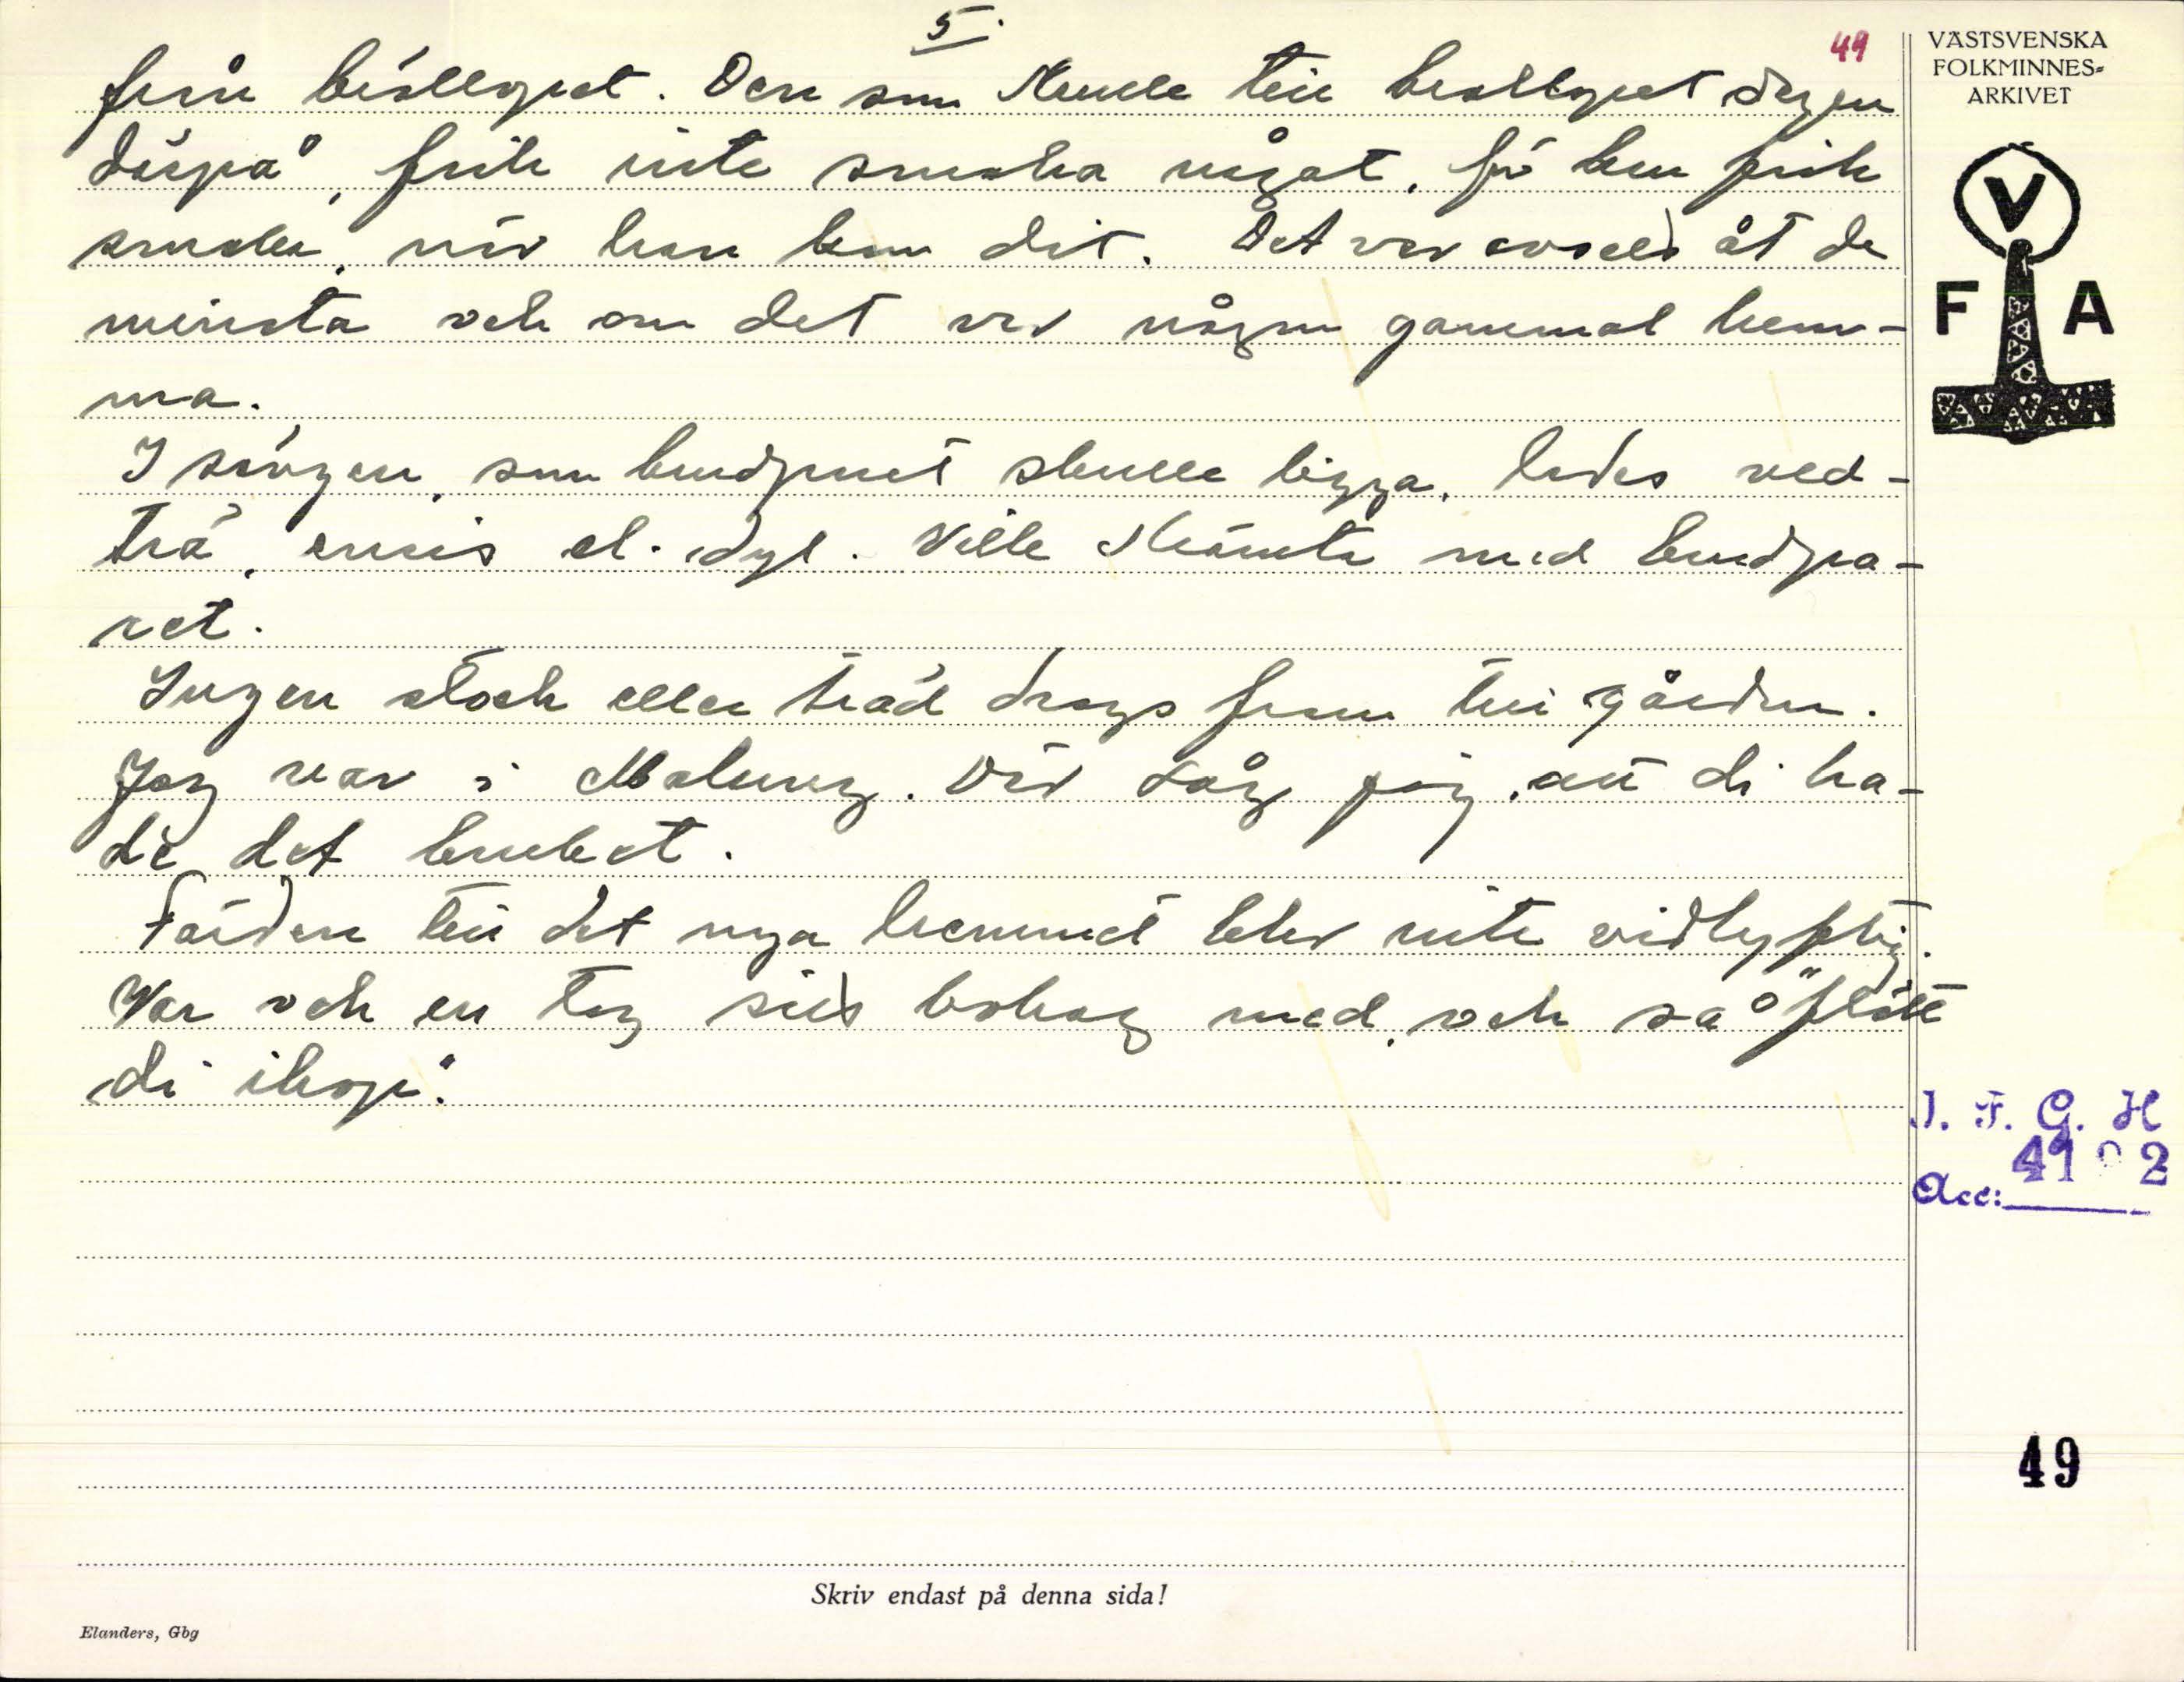 5.
49
från bröllopet. Den som skulle till bröllopet dagen
därpå, fick inte smaka något, för han fick
smaka, när han kom dit. Det var avsett åt de
minsta och om det var någon gammal hem-
ma.
I sängen, som brudparet skulle ligga, lades ved-
trä, enris el. dyl. Ville skämta med brudpa-
ret.
Ingen stock eller träd drogs fram till gården.
Jag var i Malung. Där såg jag, att di ha-
de det bruket.
Färden till det nya hemmet blev inte vidlyftig.
Var och en tog sitt bohag med, och så "flötte
di ihop".
VÄSTSVENSKA
FOLKMINNES-
ARKIVET
V
F A
I. F. G. H
Acc:
49
Skriv endast på denna sida!
Elanders, Gbg